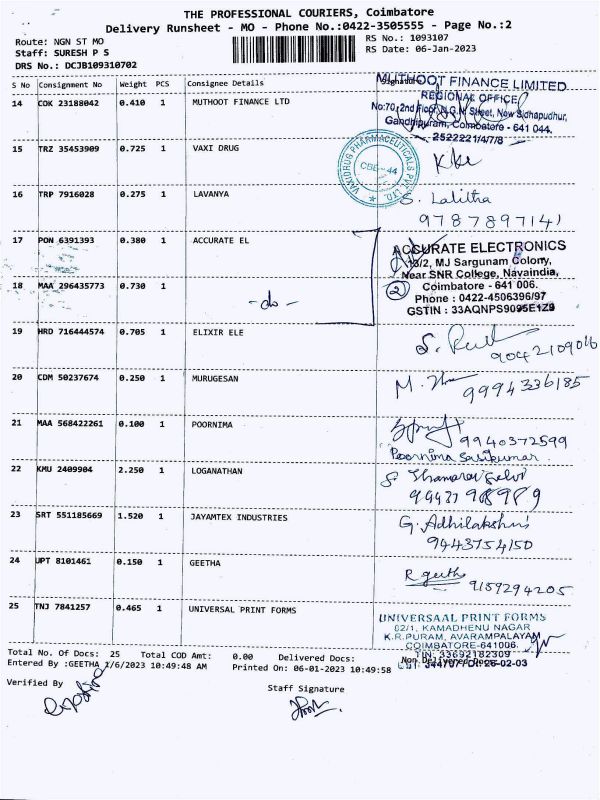 THE PROFESSIONAL COURIERS, Coimbatore
Delivery Runsheet - MO - Phone No.:0422-3505555 - Page No.:2
Route: NGN ST MO RS No.: 1093107
Staff: SURESH P S RS Date: 06-Jan-2023
DRS No.: DCJB109310702
S No Consignment No Weight PCS Consignee Details
MUTHOOT FINANCE LIMITED
14 COK 23188042 0.410 1 MUTHOOT FINANCE LTD
REGIONAL OFFICE
No:70, 2nd Floor, N.G.N. Street, New Sidhapudhur,
Gandhipuram, Coimbatore - 641 044.
2522221/4/7/8
15 TRZ 35453909 0.725 1 VAXI DRUG
VAXIDRUG PHARMACEUTICALS PVT. LTD.
CBE-44
16 TRP 7916028 0.275 1 LAVANYA S. Lalitha
9787897141
17 PON 6391393 0.380 1 ACCURATE EL
ACCURATE ELECTRONICS
13/2, MJ Sargunam Colony,
Near SNR College, Navaindia,
18 MAA 296435773 0.730 1 -do- 2
Coimbatore - 641 006.
Phone : 0422-4506396/97
GSTIN : 33AQNPS9095E1Z9
19 HRD 716444574 0.705 1 ELIXIR ELE
9042109016
20 CDM 50237674 0.250 1 MURUGESAN
9994336185
21 MAA 568422261 0.100 1 POORNIMA
9940372599
Poornima Sasikumar
22 KMU 2409904 2.250 1 LOGANATHAN
S Thamarai Selvi
23 SRT 551185669 1.520 1 JAYAMTEX INDUSTRIES G. Adhilakshmi
9443754150
24 UPT 8101461 0.150 1 GEETHA R geetha
9159294205
25 TNJ 7841257 0.465 1 UNIVERSAL PRINT FORMS
UNIVERSAAL PRINT FORMS
62/1, KAMADHENU NAGAR
K.R.PURAM, AVARAMPALAYAM
COIMBATORE-641006.
TIN: 33692182309
Total No. Of Docs: 25 Total COD Amt: 0.00 Delivered Docs: Non Delivered Docs:
Entered By :GEETHA 1/6/2023 10:49:48 AM Printed On: 06-01-2023 10:49:58
Verified By Staff Signature